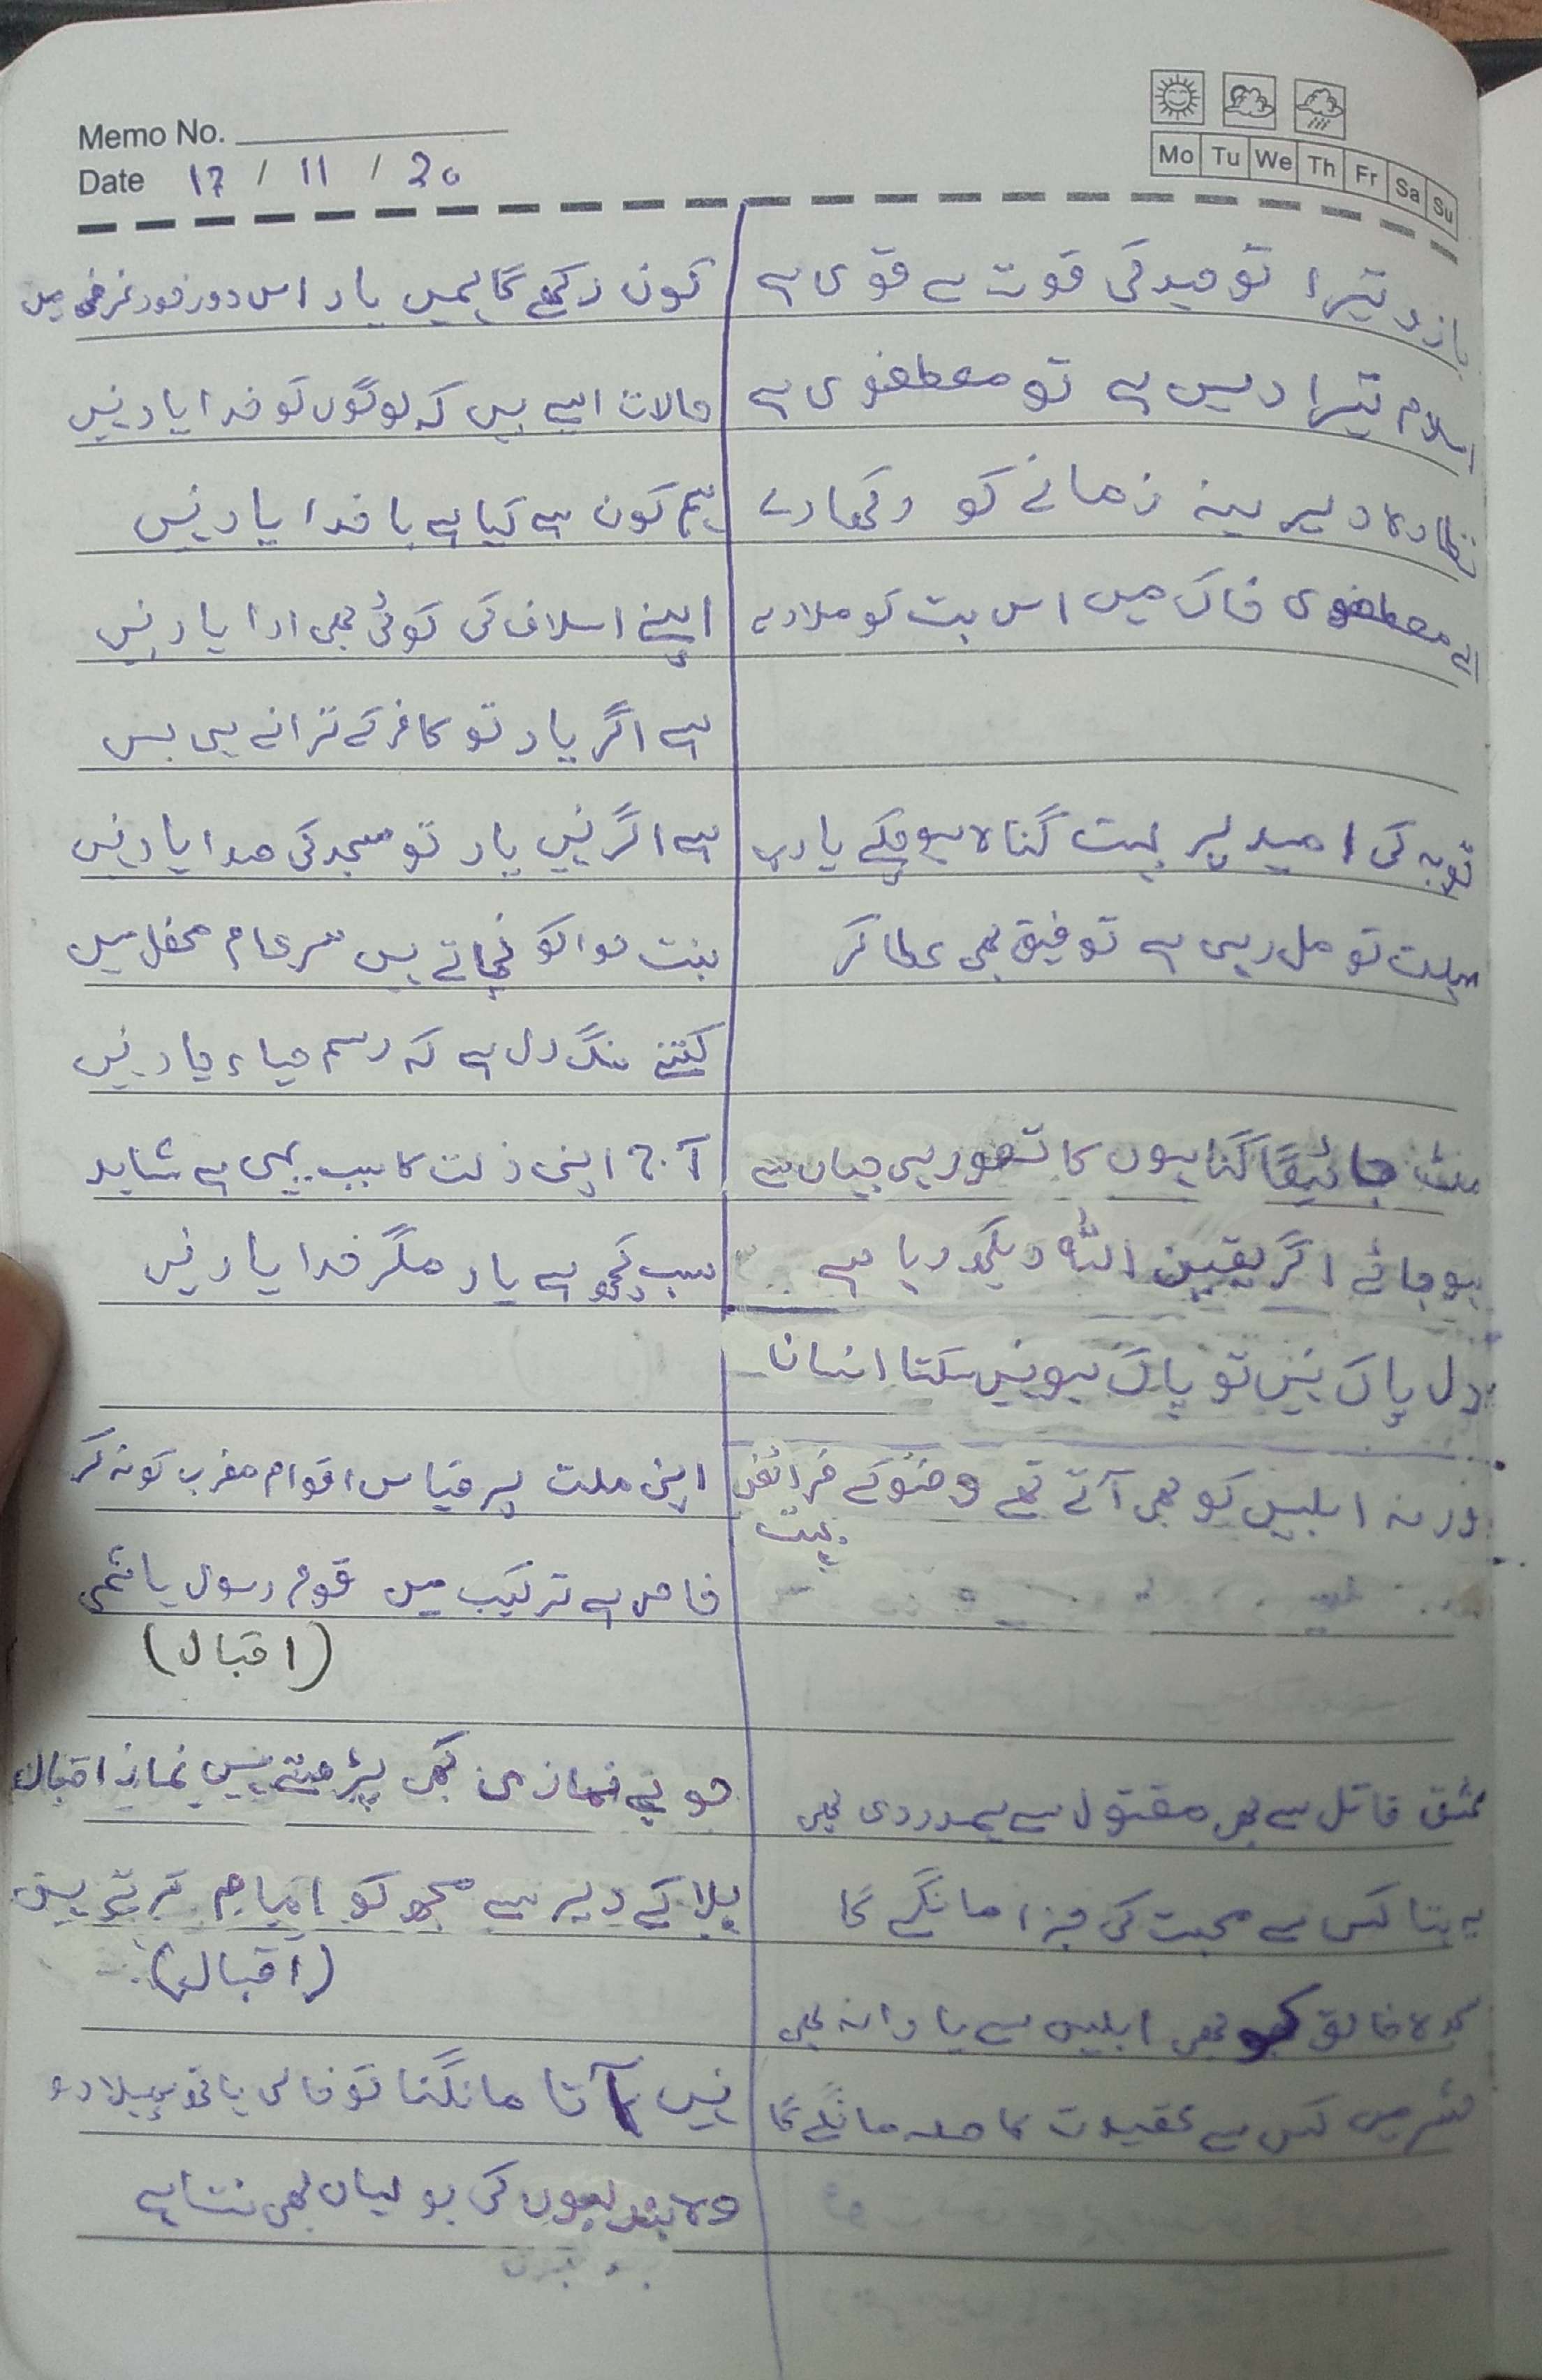 Memo No.
Date 17 / 11 / 20
Mo Tu We Th Fr Sa Su
بازو تیرا توحید کی قوت سے قوی ہے
اسلام تیرا دیس ہے تو مصطفوی ہے
نظارہ دیرینہ زمانے کو دکھا دے
اے مصطفوی خاک میں اس بت کو ملا دے
توبہ کی امید پر بہت گناہ ہوچکے یارب
مہلت تو مل رہی ہے توفیق بھی عطا کر
مٹ جائیگا گناہوں کا تصور ہی جہاں سے
ہوجائے اگر یقین اللہ دیکھ رہا ہے
دل پاک نہیں تو پاک ہو نہیں سکتا انسان
ورنہ ابلیس کو بھی آتے تھے وضو کے فرائض
بہت
عشق قاتل سے بھی مقتول سے ہمدردی بھی
یہ بتا کس سے محبت کی جزا مانگے گا
سجدہ خالق کو بھی ابلیس سے یارانہ بھی
حشر میں کس سے عقیدت کا صلہ مانگے گا
کون رکھے گا ہمیں یاد اس دور خود غرضی میں
حالات ایسے ہیں کہ لوگوں کو خدا یاد نہیں
ہم کون ہے کیا ہے با خدا یاد نہیں
اپنے اسلاف کی کوئی بھی ادا یاد نہیں
ہے اگر یاد تو کافر کے ترانے ہی بس
ہے اگر نہیں یاد تو مسجد کی صدا یاد نہیں
بنت حوا کو نچاتے ہیں سر عام محفل میں
کتنے سنگ دل ہے کہ رسم حیاء یاد نہیں
آج اپنی ذلت کا سبب یہی ہے شاید
سب کچھ ہے یاد مگر خدا یاد نہیں
اپنی ملت پر قیاس اقوام مغرب کو نہ کر
خاص ہے ترکیب میں قوم رسول ہاشمی
(اقبال)
جو بے نمازی بھی پڑھتے ہیں نماز اقبال
بلا کے دیر سے مجھ کو امام کرتے ہیں
(اقبال)
نہیں آتا مانگنا تو خالی ہاتھ پھیلا دو
وہ بند لبوں کی بولیاں بھی سنتا ہے